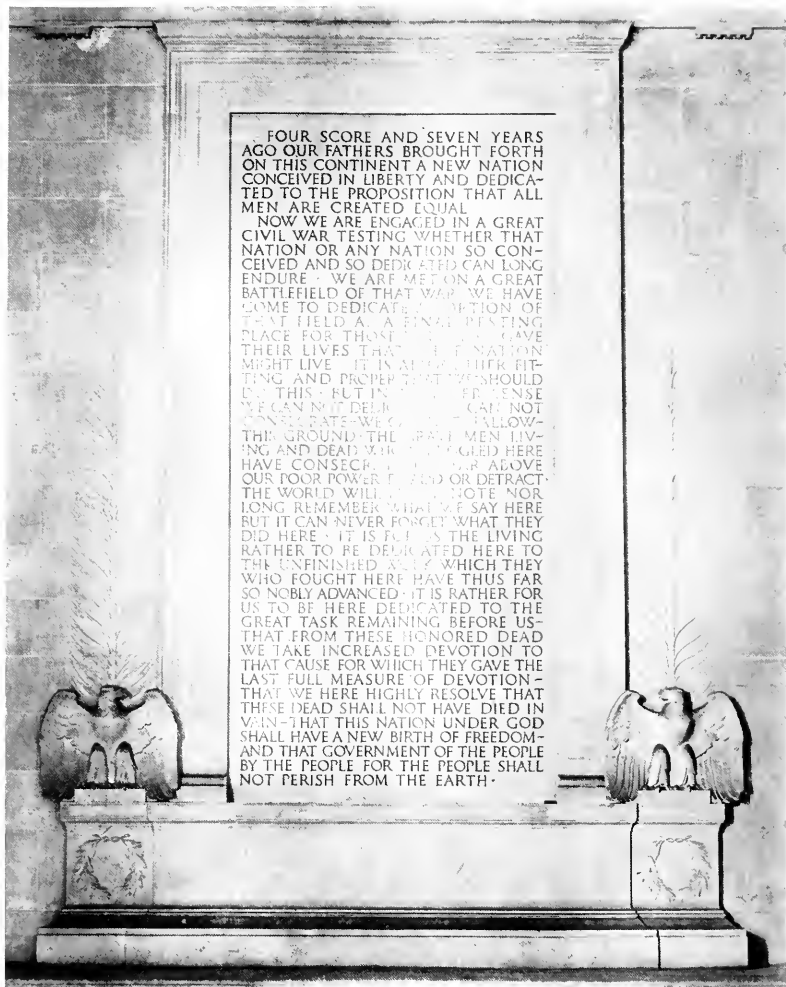 FOUR SCORE AND SEVEN YEARS
AGO OUR FATHERS BROUGHT FORTH
ON THIS CONTINENT A NEW NATION
CONCEIVED IN LIBERTY AND DEDICA-
TED TO THE PROPOSITION THAT ALL
MEN ARE CREATED EQUAL
NOW WE ARE ENGAGED IN A GREAT
CIVIL WAR TESTING WHETHER THAT
NATION OR ANY NATION SO CON-
CEIVED AND SO DEDICATED CAN LONG
ENDURE · WE ARE MET ON A GREAT
BATTLEFIELD OF THAT WAR WE HAVE
COME TO DEDICATE A PORTION OF
THAT FIELD A FINAL RESTING
PLACE FOR THOSE GAVE
THEIR LIVES THAT NATION
MIGHT LIVE IT IS ALTOGETHER FIT-
TING AND PROPER THAT WE SHOULD
DO THIS · BUT IN SENSE
WE CAN NOT CAN NOT
CONSECRATE WE HALLOW-
THIS GROUND · THE BRAVE MEN LIV-
ING AND DEAD WHO HERE
HAVE ABOVE
OUR POOR POWER OR DETRACT ·
THE WORLD WILL NOTE NOR
LONG REMEMBER WHAT WE SAY HERE
BUT IT CAN NEVER FORGET WHAT THEY
DID HERE · IT IS FOR US THE LIVING
RATHER TO BE DEDICATED HERE TO
THE UNFINISHED WORK WHICH THEY
WHO FOUGHT HERE HAVE THUS FAR
SO NOBLY ADVANCED · IT IS RATHER FOR
US TO BE HERE DEDICATED TO THE
GREAT TASK REMAINING BEFORE US-
THAT FROM THESE HONORED DEAD
WE TAKE INCREASED DEVOTION TO
THAT CAUSE FOR WHICH THEY GAVE THE
LAST FULL MEASURE OF DEVOTION-
THAT WE HERE HIGHLY RESOLVE THAT
THESE DEAD SHALL NOT HAVE DIED IN
VAIN-THAT THIS NATION UNDER GOD
SHALL HAVE A NEW BIRTH OF FREEDOM-
AND THAT GOVERNMENT OF THE PEOPLE
BY THE PEOPLE FOR THE PEOPLE SHALL
NOT PERISH FROM THE EARTH ·